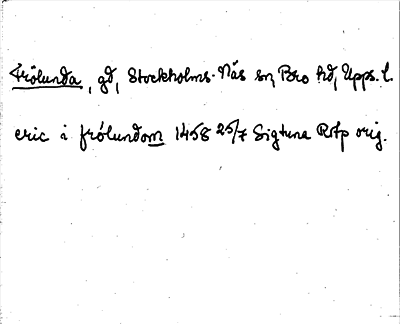 Frölunda, gd, Stockholms-Näs sn, Bro hd, Upps. l.
eric i frölundom 1458 25/7 Sigtuna RAp orig.